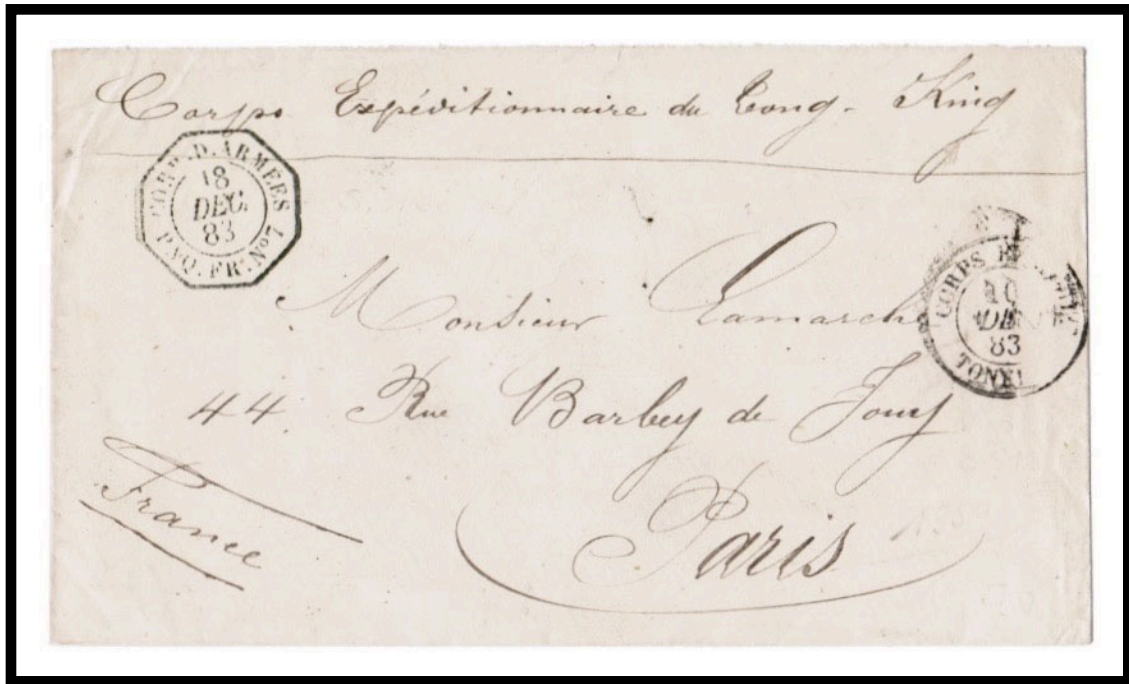 Corps Expéditionnaire du Tong-King
CORR. D. ARMÉES
18
DEC.
83
PAQ. FR. No 7
CORPS
10
DEC
83
Monsieur Lamarche
44 Rue Barbey de Jouy
Paris
France